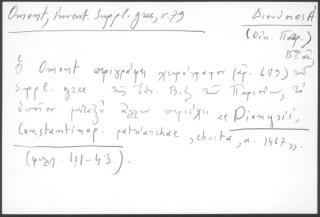 Omont, Invent. Suppl. grec, σ. 79
Διονύσιος Α'
(Οἰκ. Πατρ.)
15ος αἰ.
Ὁ Omont περιγράφει χειρόγραφον (ἀρ. 689) τοῦ
Suppl. grec τῆς Ἐθν. Βιβ. τῶν Παρισίων, τὸ
ὁποῖον μεταξὺ ἄλλων περιέχει καὶ Dionysii,
Constantinop. patriarchae, charta, a. 1467».
(φύλλ. 41-43).